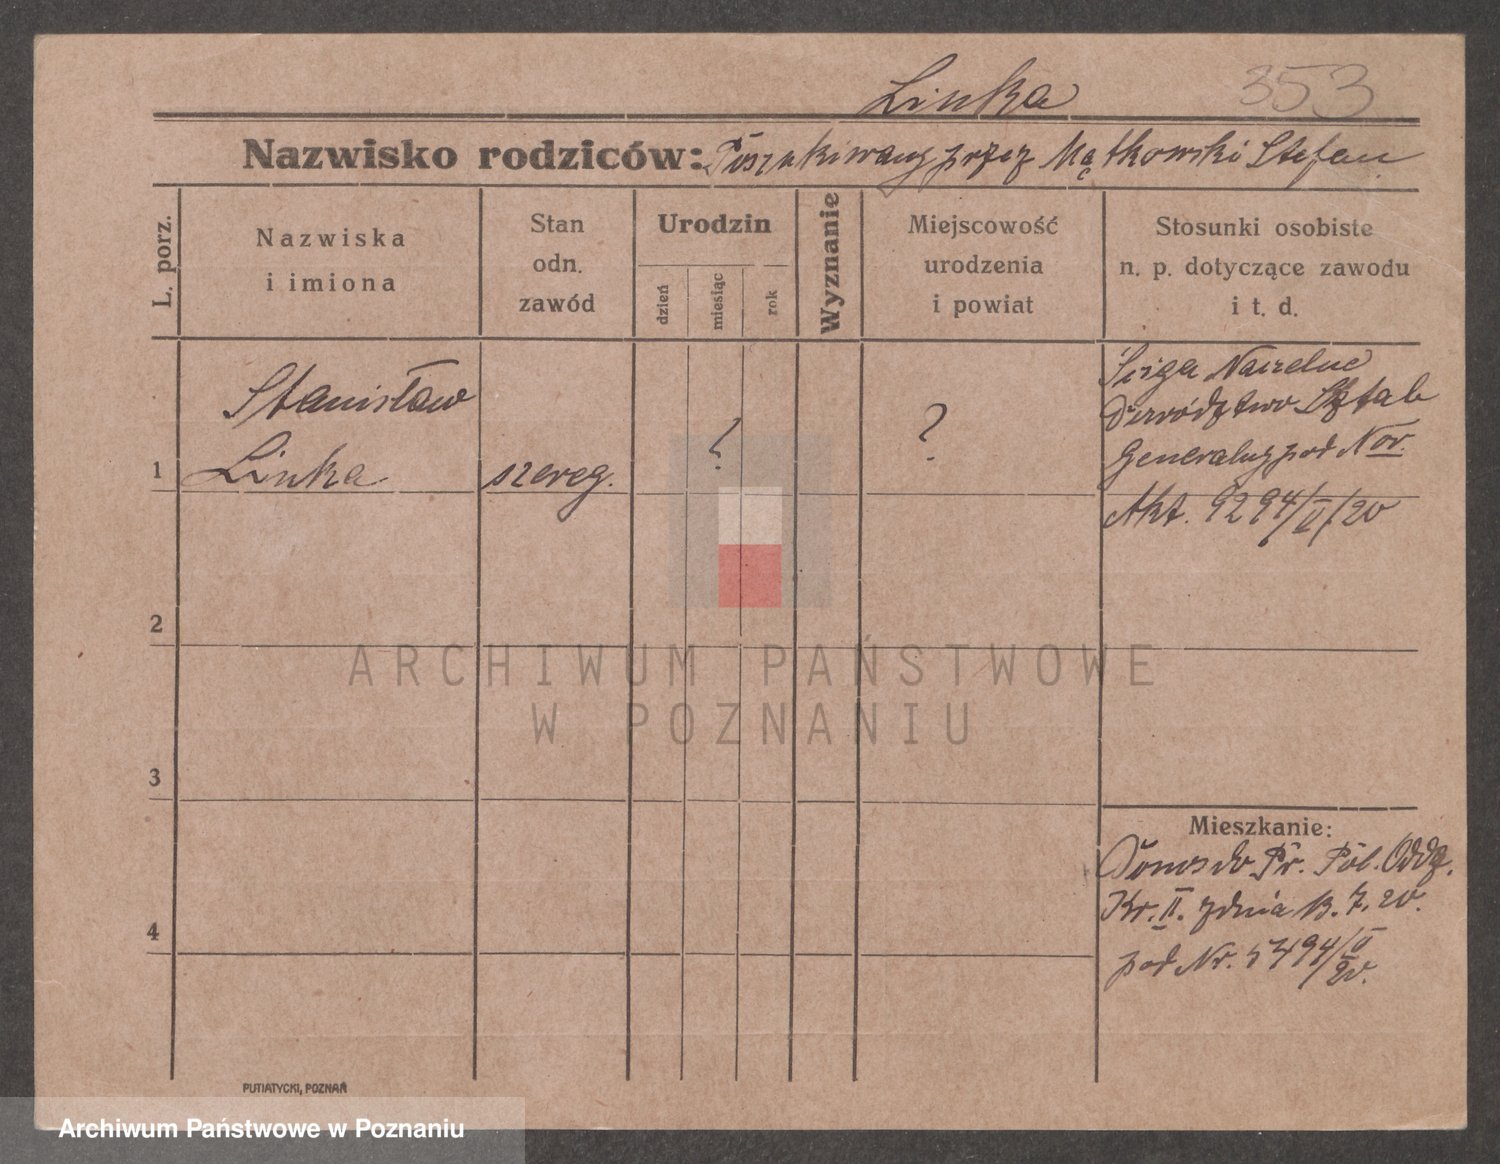 Linka 353
Nazwisko rodziców: Poszukiwany przez Mątkowski Stefan
L. porz.
Nazwiska
i imiona
Stan
odn.
zawód
Urodzin
dzień
miesiąc
rok
Wyznanie
Miejscowość
urodzenia
i powiat
Stosunki osobiste
n. p. dotyczące zawodu
i t. d.
1
Stanisław
Linka
szereg.
?
?
Ściga Naczelne
Dowództwo Sztab
Generalny pod Nor.
Akt. 9294/II/20
2
3
4
Mieszkanie:
Donos do Pr. Pol. Oddz.
Kr. II. z dnia 13. 7. 20.
pod Nr. 5494/II
20.
PUTIATYCKI, POZNAŃ
ARCHIWUM PAŃSTWOWE
W POZNANIU
Archiwum Państwowe w Poznaniu